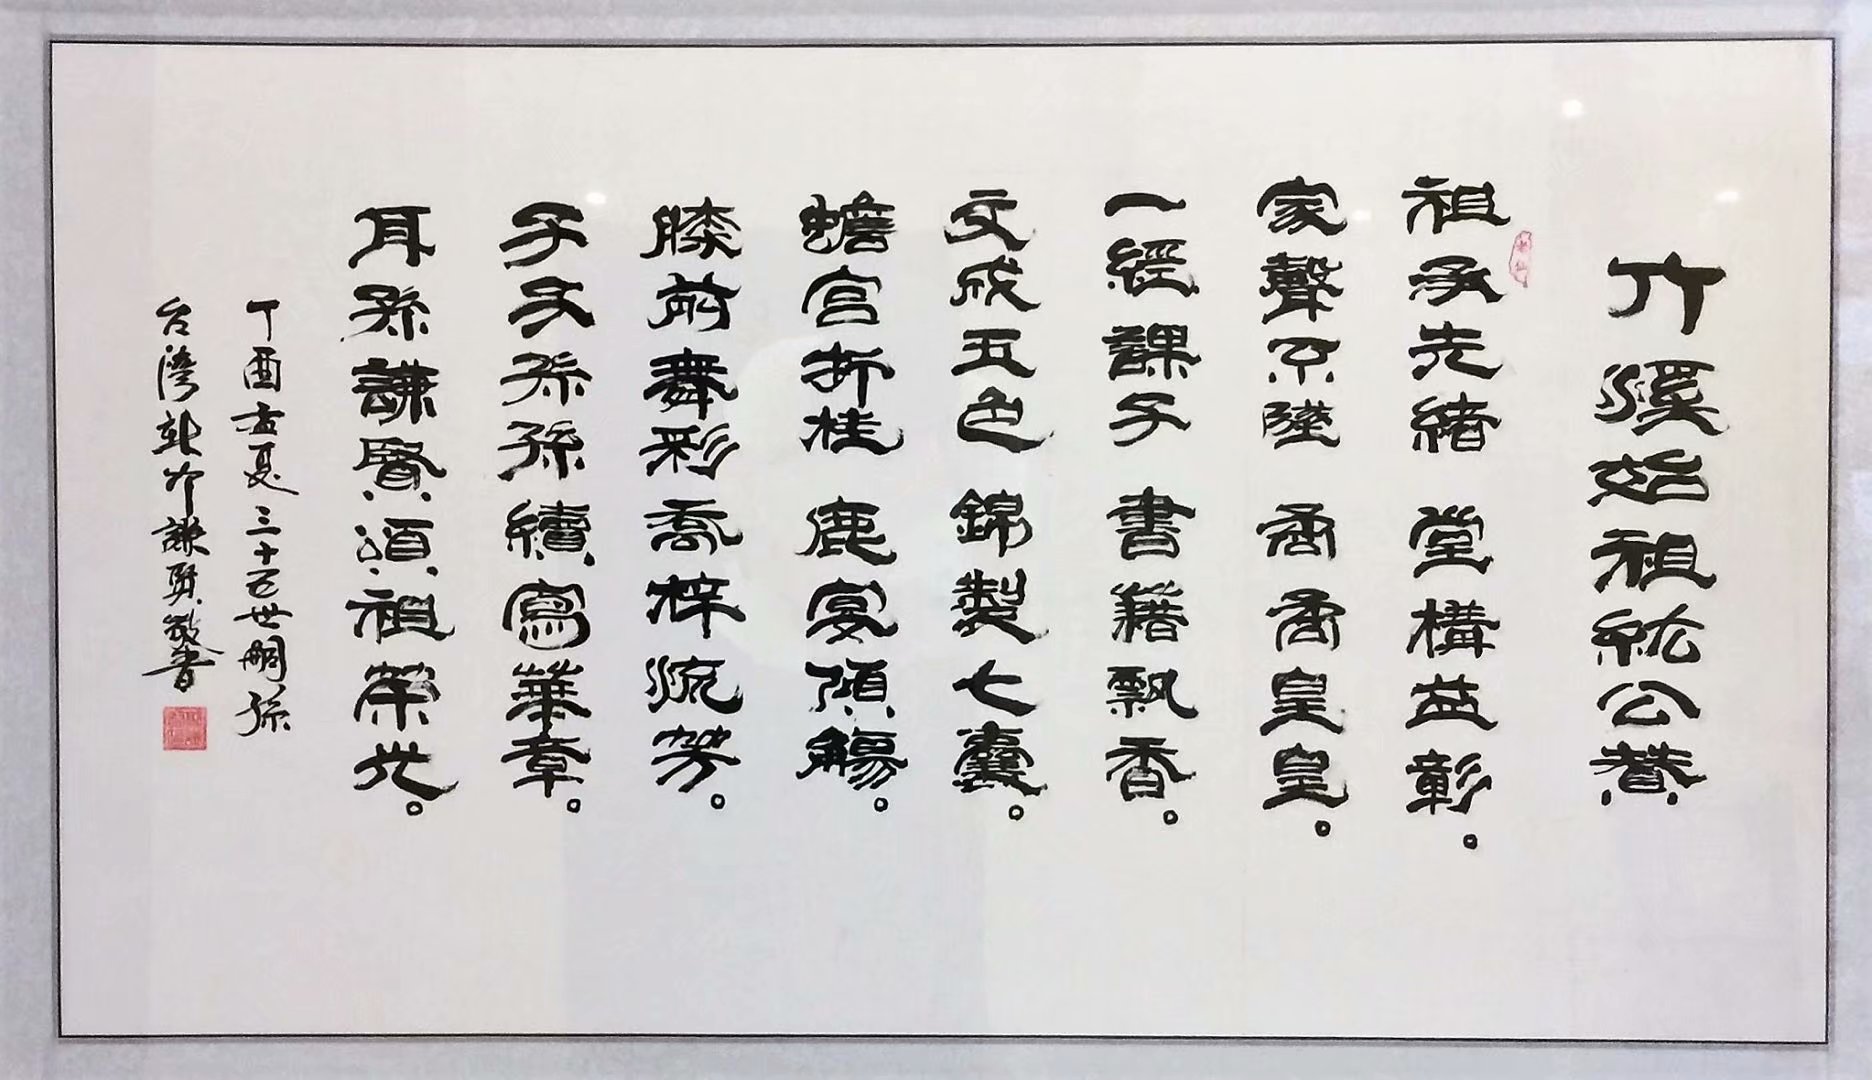 竹溪始祖紘公贊
祖承先緒 堂構益彰。
家聲不墜 矞矞皇皇。
一經課子 書籍飄香。
文成五色 錦製七囊。
蟾宮折桂 鹿宴傾觴。
膝前舞彩 喬梓流芳。
子子孫孫 續寫華章。
耳孫謙賢 頌祖榮光。
丁酉孟夏 三十五世嗣孫
台灣新竹謙賢敬書